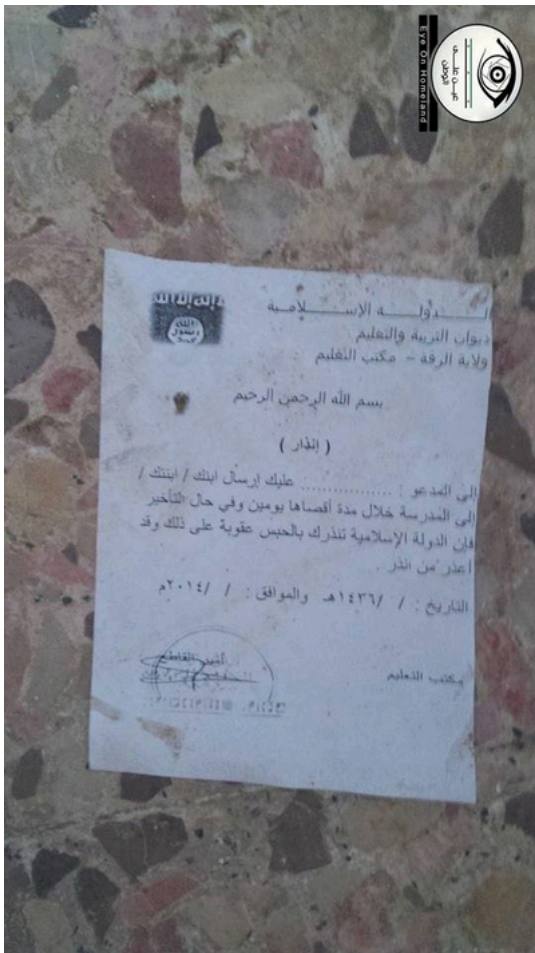 عين على الوطن
Eye On Homeland
لا إله إلا الله
الله
رسول
محمد
الـــدولـــة الإســـــلامية
ديوان التربية والتعليم
ولاية الرقة – مكتب التعليم
بسم الله الرحمن الرحيم
( إنذار )
إلى المدعو : ................. عليك إرسال ابنك / ابنتك /
إلى المدرسة خلال مدة أقصاها يومين وفي حال التأخير
فإن الدولة الإسلامية تنذرك بالحبس عقوبة على ذلك وقد
أعذر من انذر .
التاريخ : / /١٤٣٦هـ والموافق : / /٢٠١٤م
مكتب التعليم
أمير القاطع